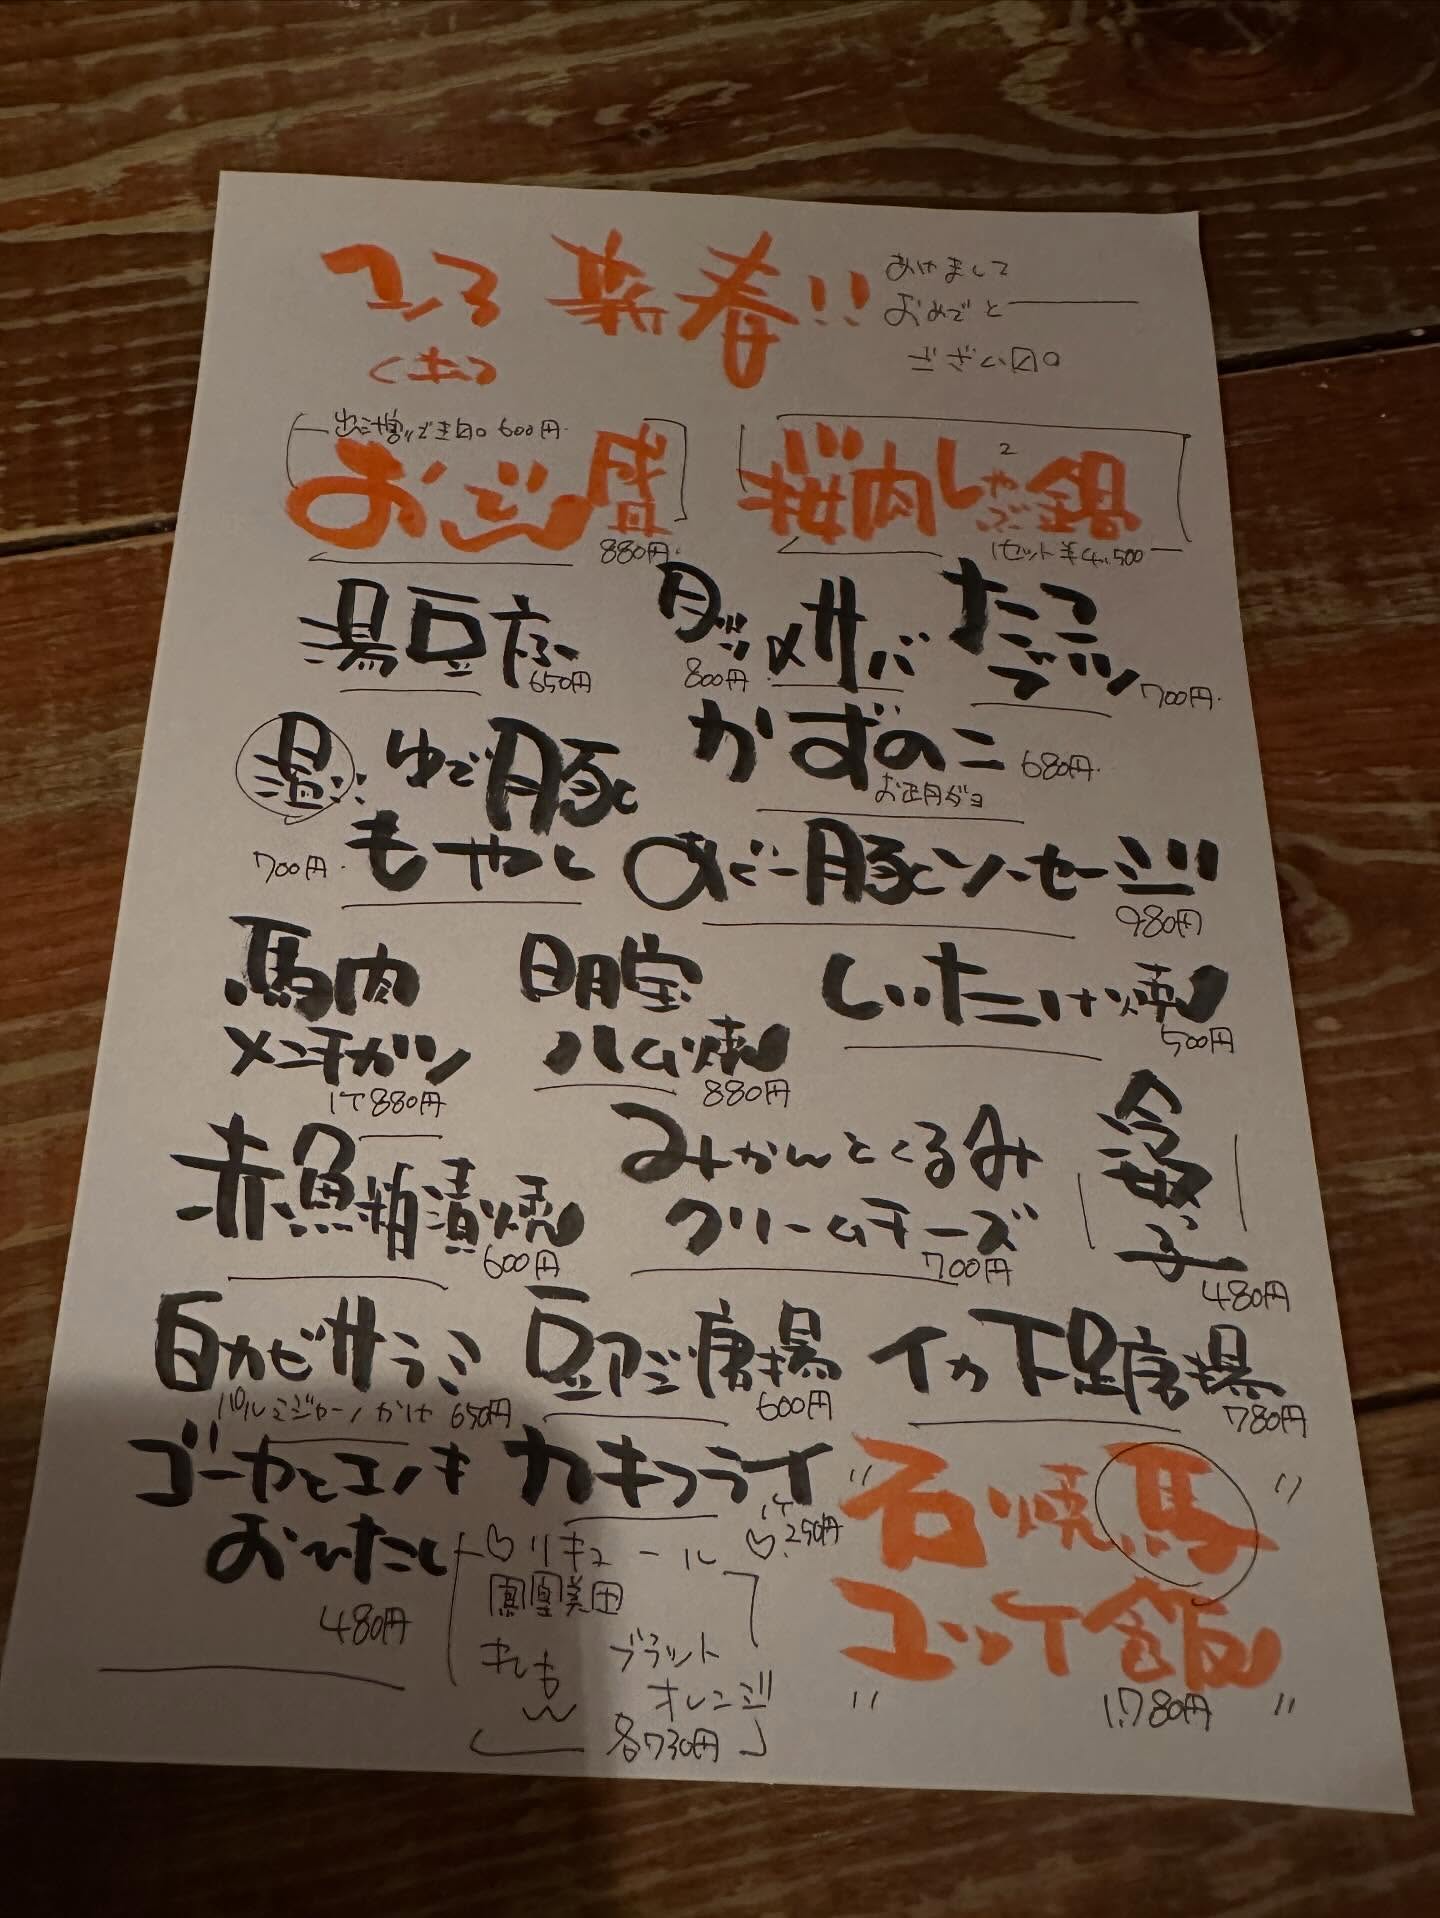 1/3 新春!!
(土)
あけまして
おめでとー
ござい〼。
出汁増しでき〼。600円
おでん盛
880円
桜肉しゃぶ鍋
1セット¥4,500
湯豆ふ
650円
〆サバ
800円
たこブツ
700円
温
ゆで豚と
もやし
700円
かずのこ
680円
お正月ダヨ
あぐー豚とソーセージ
980円
馬肉
メンチカツ
1ケ880円
明宝
ハム焼
880円
しいたけ焼
500円
赤魚粕漬焼
600円
みかんとくるみ
クリームチーズ
700円
白カビサラミ
パルミジャーノかけ 650円
豆アジ唐揚
600円
イカ下足唐揚
780円
480円
ゴーヤとエノキ
おひたし
480円
カキフライ
1ケ290円
リキュール
鳳凰美田
れもん
ブラッド
オレンジ
各730円
"石焼馬
ユッケ飯"
1,780円